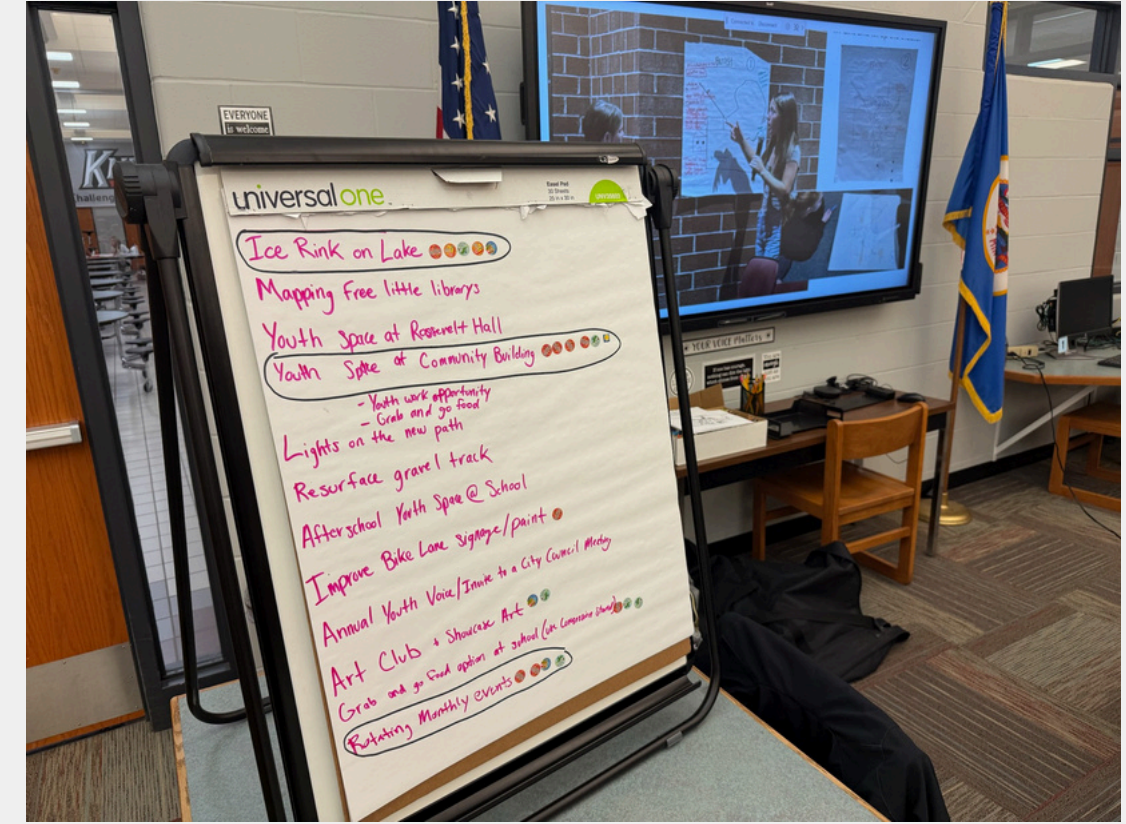 EVERYONE
is welcome
universal one.
Easel Pad
Ice Rink on Lake
Mapping Free little librarys
Youth Space at Roosevelt Hall
Youth Space at Community Building
- Youth work opportunity
- Grab and go food
Lights on the new path
Resurface gravel track
Afterschool Youth Space @ School
Improve Bike Lane signage/paint
Annual Youth Voice/Invite to a City Council Meeting
Art Club + Showcase Art
Grab and go food option at school
Rotating Monthly events
YOUR VOICE Matters